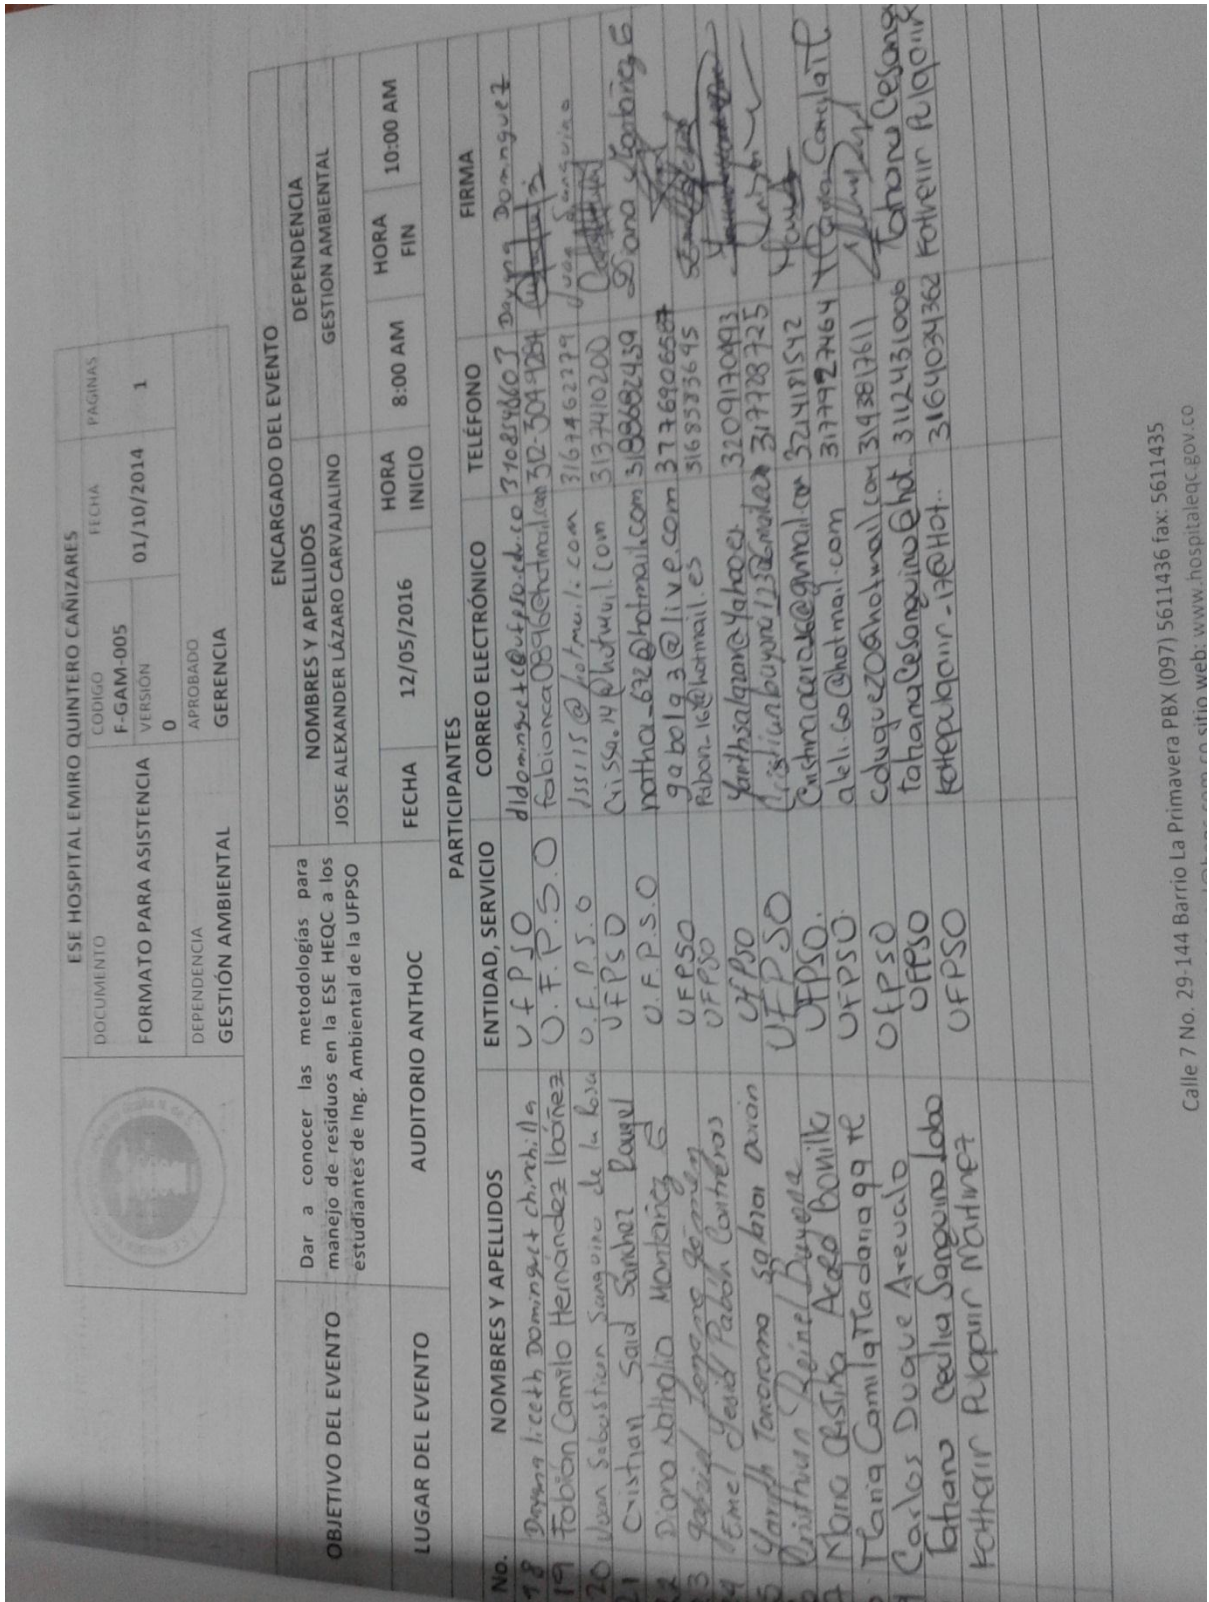 ESE HOSPITAL EMIRO QUINTERO CAÑIZARES
DOCUMENTO CODIGO FECHA PAGINAS
FORMATO PARA ASISTENCIA F-GAM-005 01/10/2014 1
VERSIÓN
0
DEPENDENCIA APROBADO
GESTIÓN AMBIENTAL GERENCIA
OBJETIVO DEL EVENTO
Dar a conocer las metodologías para
manejo de residuos en la ESE HEQC a los
estudiantes de Ing. Ambiental de la UFPSO
ENCARGADO DEL EVENTO
NOMBRES Y APELLIDOS DEPENDENCIA
JOSE ALEXANDER LÁZARO CARVAJALINO GESTION AMBIENTAL
LUGAR DEL EVENTO AUDITORIO ANTHOC FECHA 12/05/2016 HORA INICIO 8:00 AM HORA FIN 10:00 AM
PARTICIPANTES
No. NOMBRES Y APELLIDOS ENTIDAD, SERVICIO CORREO ELECTRÓNICO TELÉFONO FIRMA
18 Dayana liceth Dominguez chinchilla UFPSO dldominguezc@ufpso.edu.co 3108548603 Dayana Dominguez
19 Fabián Camilo Hernández Ibáñez U.F.P.S.O fabianca0896@hotmail.com 312-3049264
20 Juan Sebastian Sanguino de la Rosa U.F.P.S.O jss115@hotmail.com 3167462779 Juan Sanguino
21 Cristian Said Sanchez Rangel UFPSO Crissa.14@hotmail.com 3137410200
Diana Nathalia Montañez G U.F.P.S.O natha_672@hotmail.com 3188682439 Diana Montañez G
3 Gabriel Lozano Gómez UFPSO gabolg3@live.com 3776906587
Emel Yesid Pabón Contreras UFPSO Pabon_16@hotmail.es 3168583695
5 Yanith Torcoroma Salazar Durán UFPSO 3209170493
Cristhian Reinel Bayona UFPSO 3177728725
Maria Cristina Acero Bonilla UFPSO. 3214181542
Maria Camila Madariaga UFPSO. adeli.60@hotmail.com 3177927464
Carlos Duque Arevalo UFPSO cduque20@hotmail.com 3143817611
Tahana Cecilia Sanguino Lobo UFPSO tahanaCesanguino@hot.. 3112431006 Tahana Cesang
Katherin Pulgarin Martinez UFPSO katepulgarin_17@Hot.. 3164034362 Katherin Pulgarin
Calle 7 No. 29-144 Barrio La Primavera PBX (097) 5611436 fax: 5611435
sitio web: www.hospitaleqc.gov.co